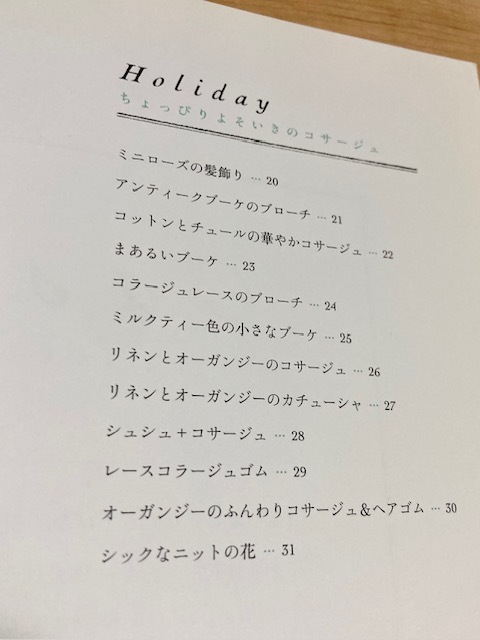 Holiday
ちょっぴりよそいきのコサージュ
ミニローズの髪飾り … 20
アンティークブーケのブローチ … 21
コットンとチュールの華やかコサージュ … 22
まあるいブーケ … 23
コラージュレースのブローチ … 24
ミルクティー色の小さなブーケ … 25
リネンとオーガンジーのコサージュ … 26
リネンとオーガンジーのカチューシャ … 27
シュシュ+コサージュ … 28
レースコラージュゴム … 29
オーガンジーのふんわりコサージュ&ヘアゴム … 30
シックなニットの花 … 31